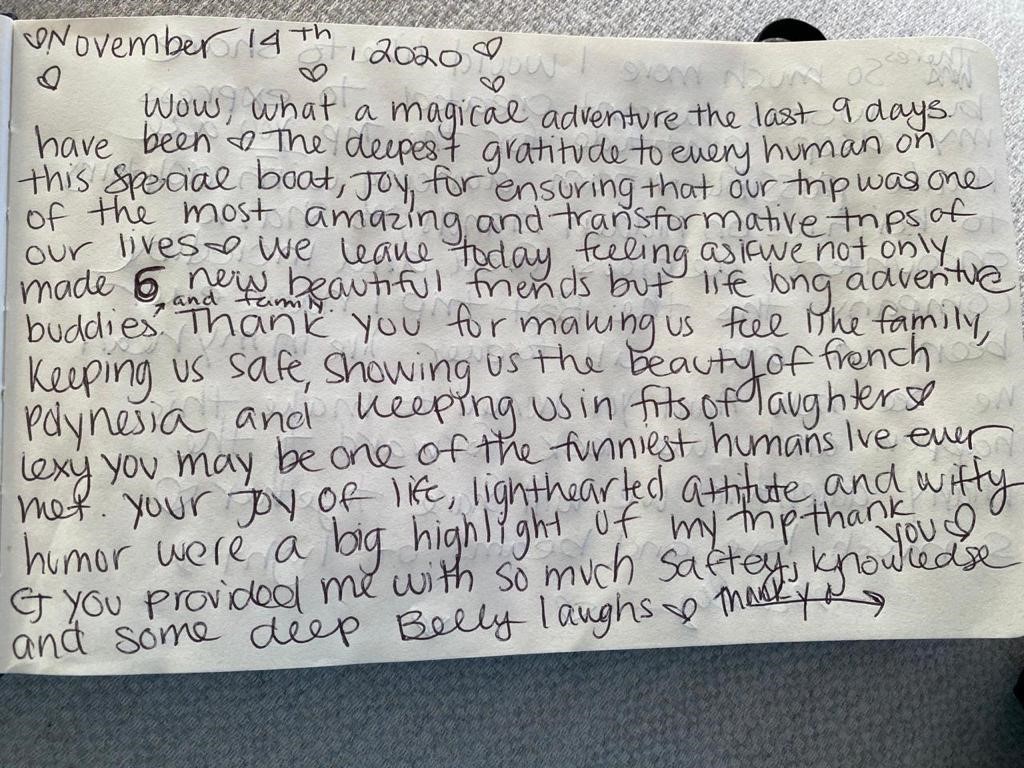 ♡November 14th, 2020♡
♡ ♡ ♡
Wow, what a magical adventure the last 9 days.
have been ♡ The deepest gratitude to every human on
this special boat, Joy, for ensuring that our trip was one
of the most amazing and transformative trips of
our lives ♡ We leave today feeling as if we not only
made 6 new beautiful friends but life long adventure
and family
buddies. Thank you for making us feel like family,
keeping us safe, showing us the beauty of french
polynesia and keeping us in fits of laughter ♡
Lexy you may be one of the funniest humans Ive ever
met. Your Joy of life, lighthearted attitute and witty
humor were a big highlight of my trip thank
you ♡
G you provided me with so much saftey, knowledse
and some deep Belly laughs ♡ Thank you →